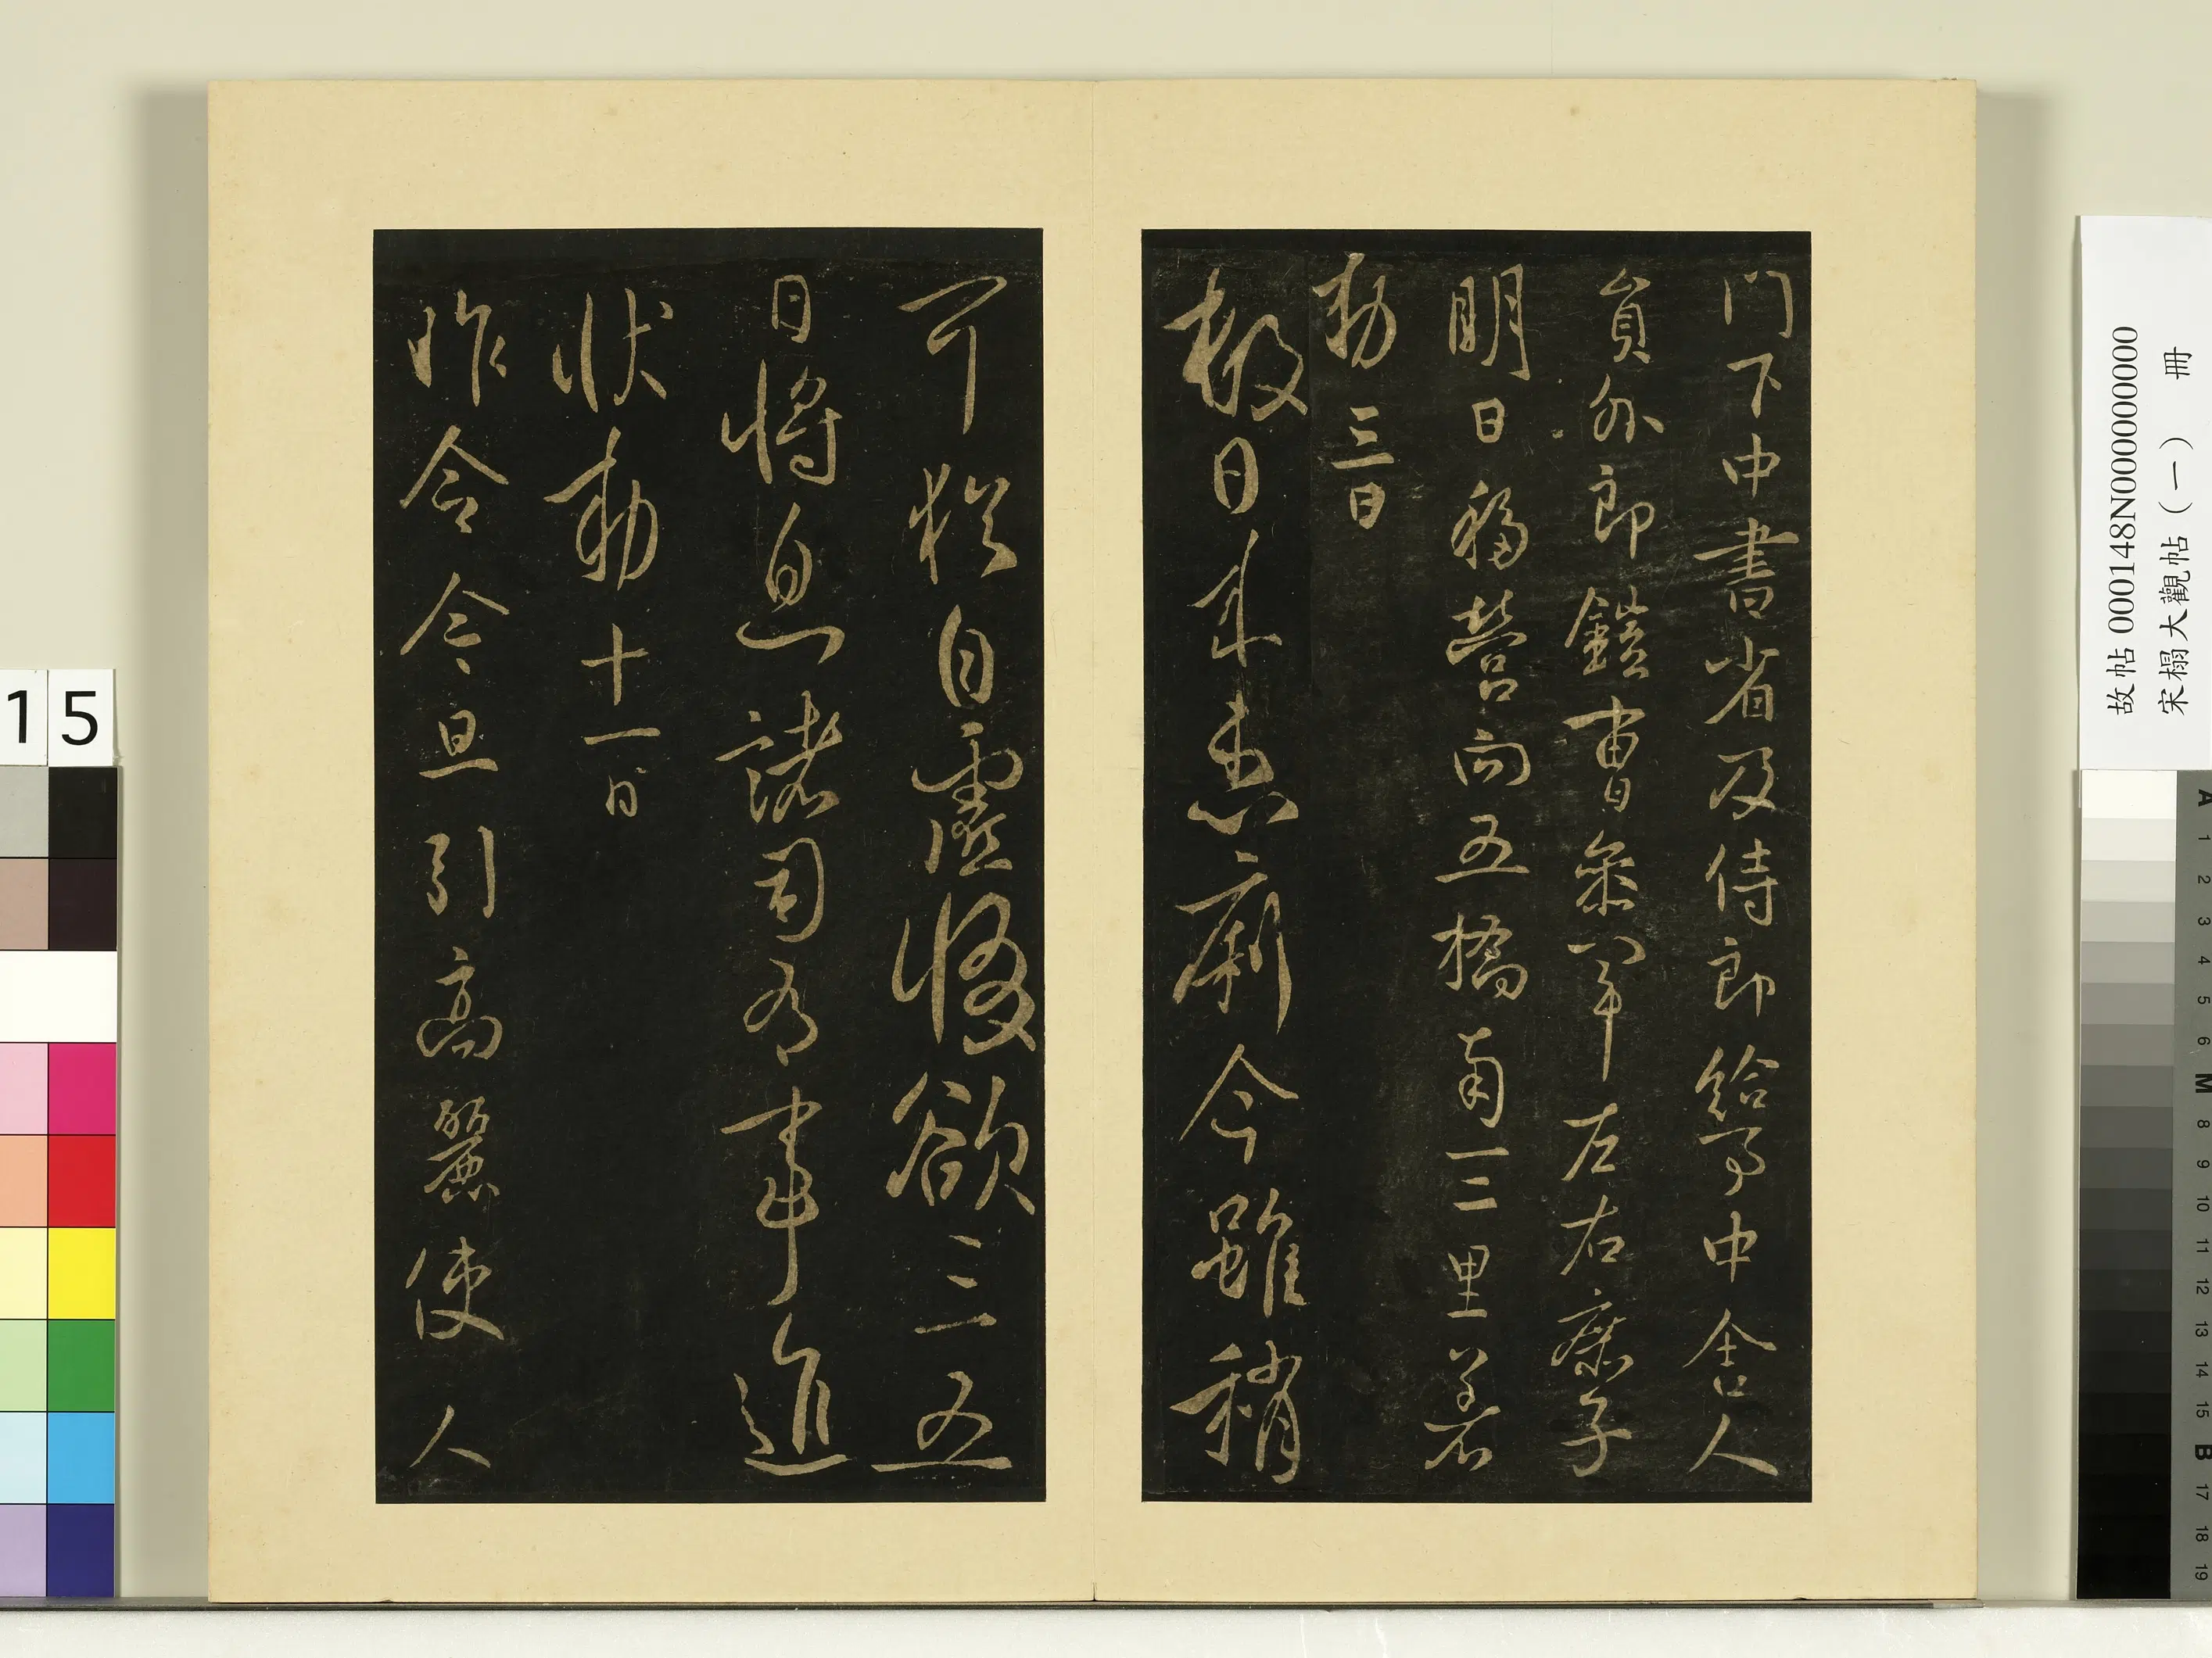 門下中書省及侍郎給事中舍人
員外郎鎧曹參軍左右庶子
明日移營向五橋南一二里著
勅三日
數日來患痢今雖稍
可猶自虛惙欲三五
日將息諸司有事進
狀勅十一日
昨令令旦引高麗使人
故帖 000148N000000000
宋榻大觀帖（一） 冊
15
A 1 2 3 4 5 6 M 8 9 10 11 12 13 14 15 B 17 18 19